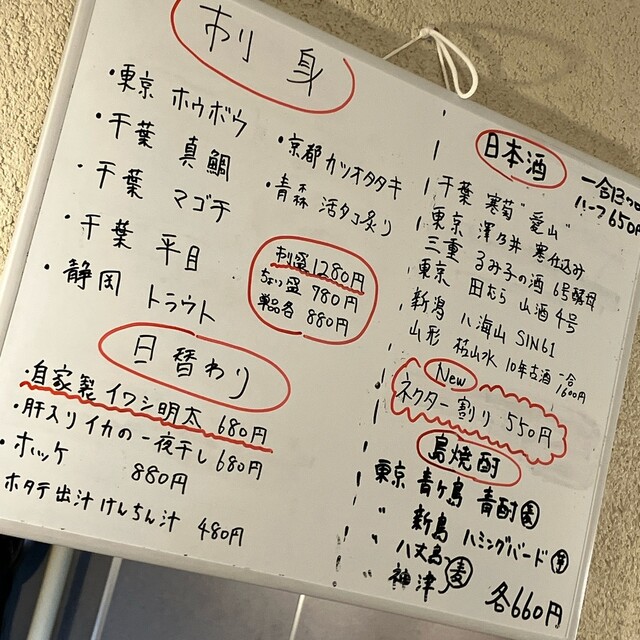 刺身
・東京 ホウボウ
・千葉 真鯛
・千葉 マゴチ
・千葉 平目
・静岡 トラウト
・京都 カツオタタキ
・青森 活タコ炙り
刺盛 1280円
ちょい盛 780円
単品各 880円
日替わり
・自家製 イワシ明太 680円
・肝入りイカの一夜干し 680円
・ホッケ 880円
ホタテ出汁けんちん汁 480円
日本酒
一合1300
ハーフ650円
千葉 寒菊"愛山"
東京 澤乃井 寒仕込み
三重 るみ子の酒 6号酵母
東京 田むら 山酒4号
新潟 八海山 SIN61
山形 枯山水 10年古酒 一合1600円
New
ネクター割り 550円
島焼酎
東京 青ヶ島 青酎 麦
〃 新島 ハミングバード
〃 八丈島 麦
神津
各660円